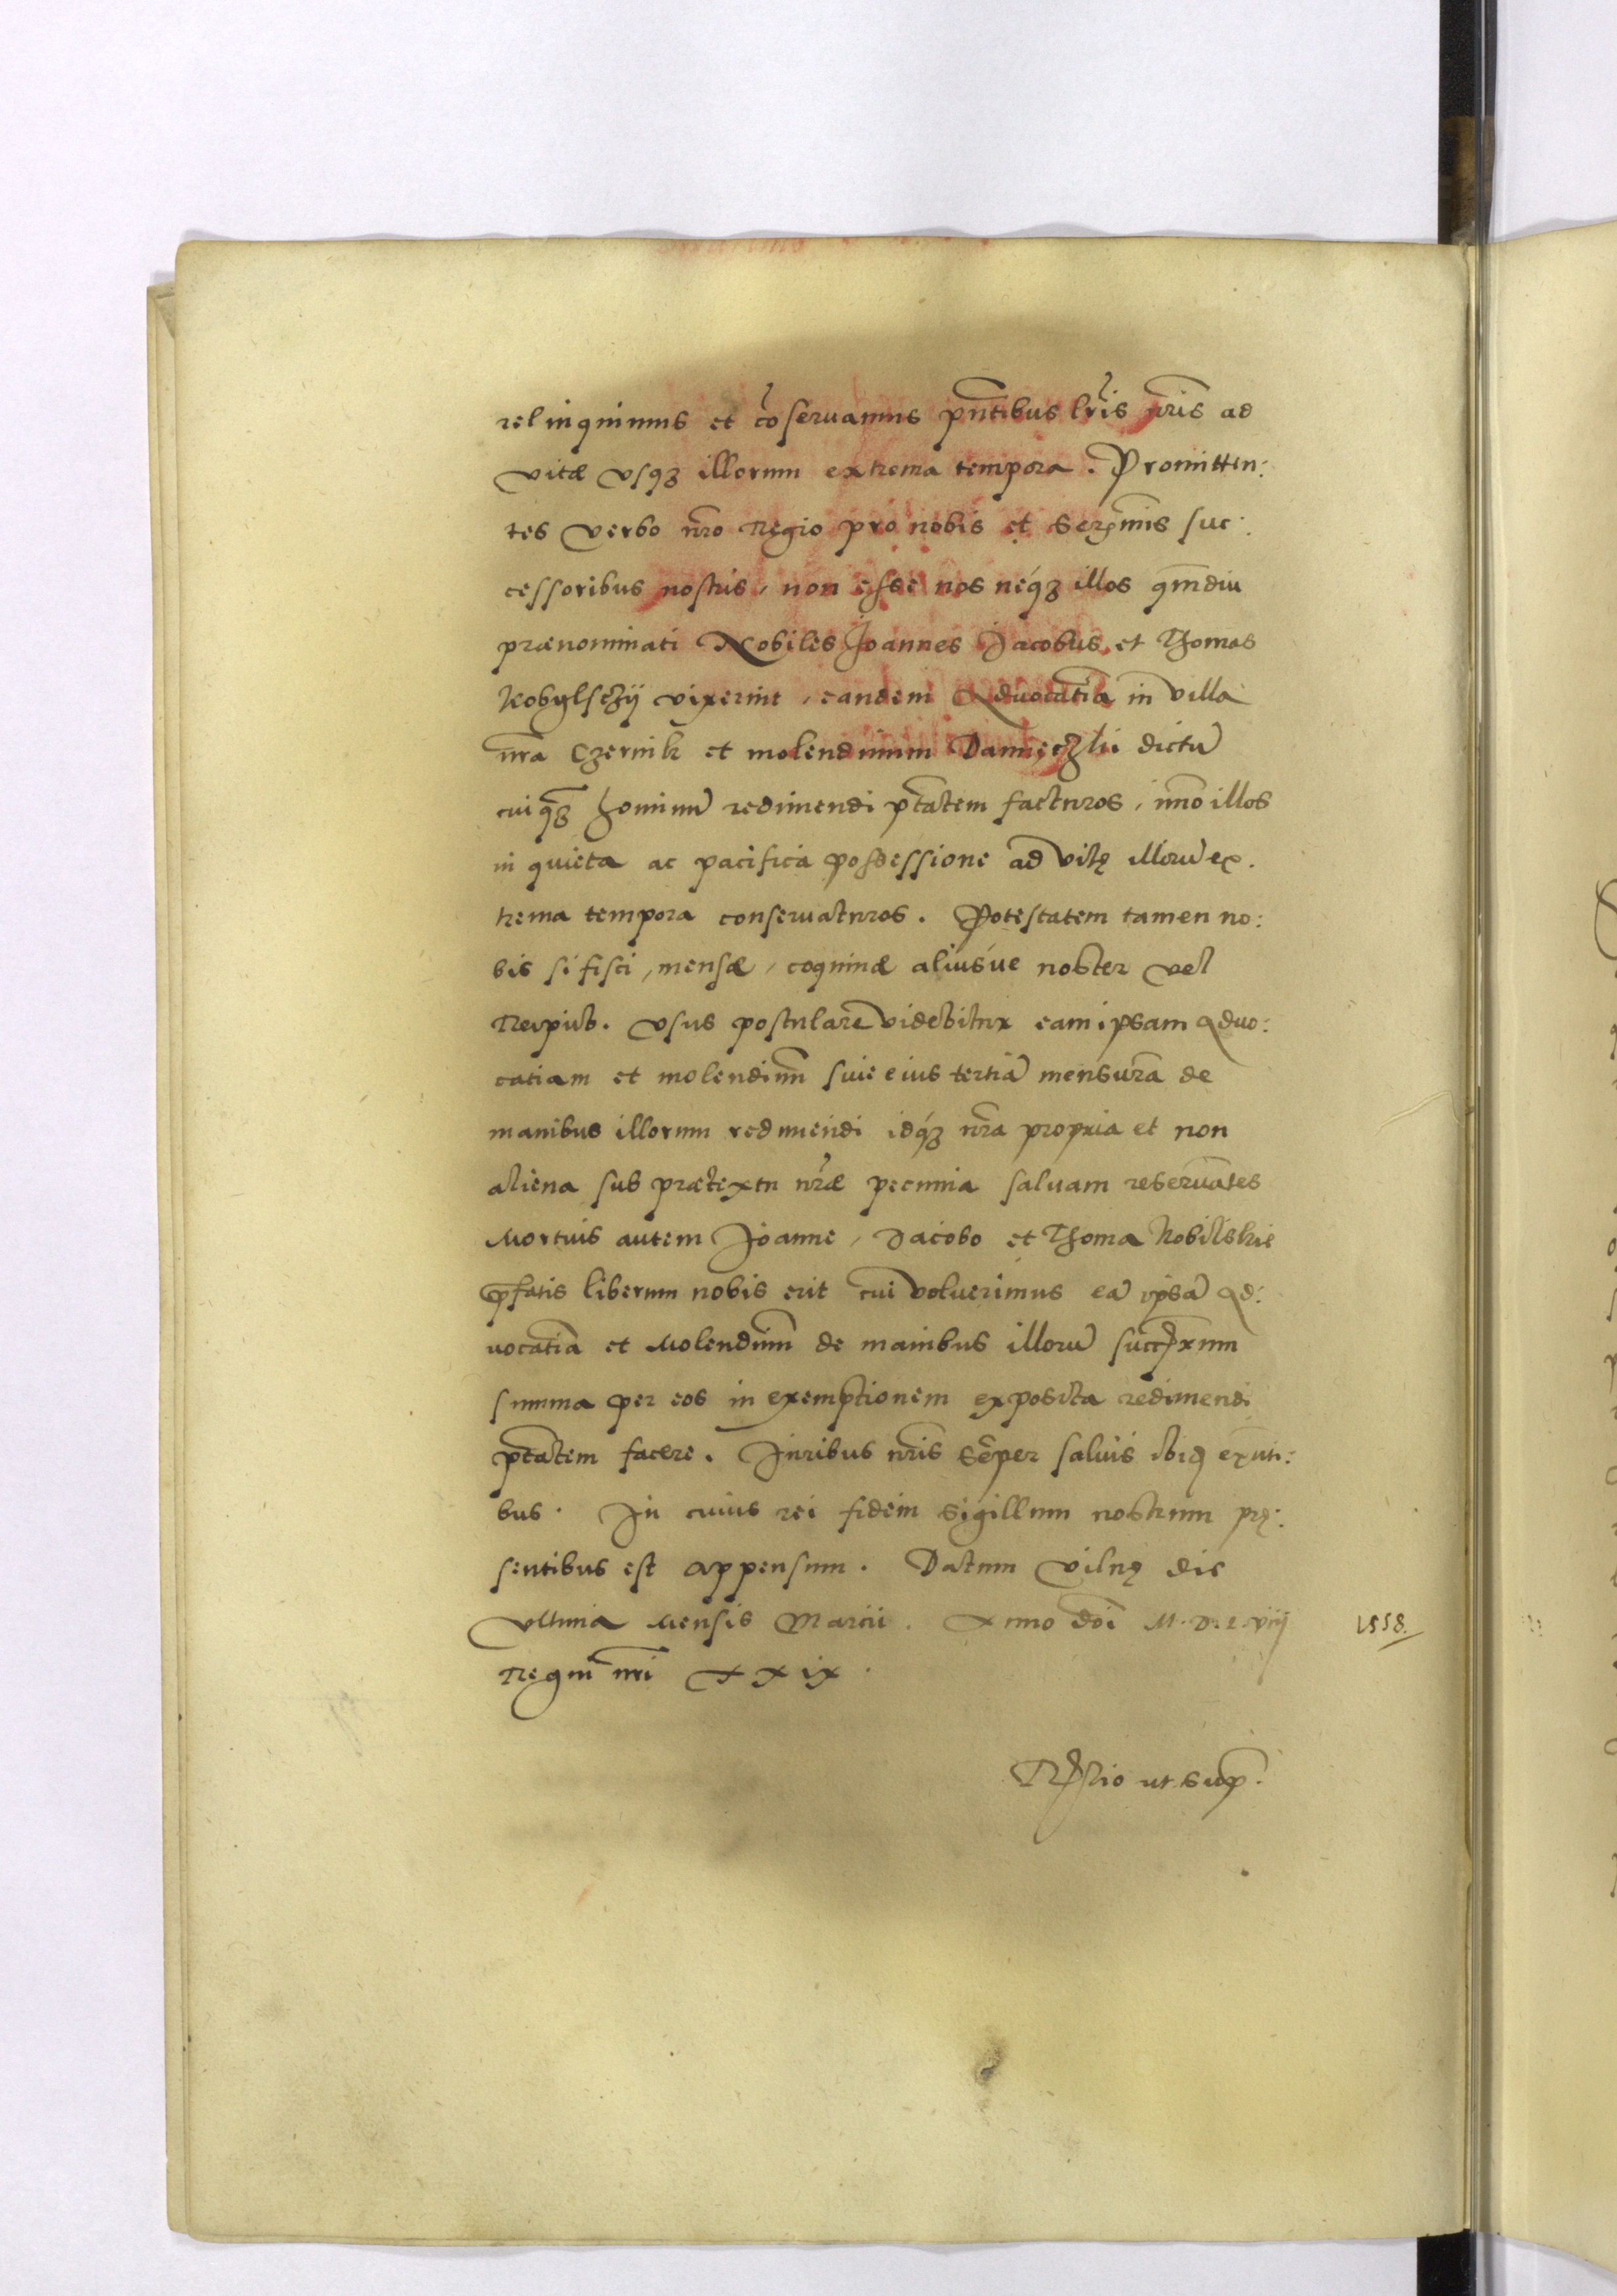 relinquimus et cõseruamus pñtibus lris nris ad
vitæ vsqȝ illorum extrema tempora. Promitten:
tes verbo nro Regio pro nobis et Serẽmis suc:
cessoribus nostris, non esse nos neqȝ illos qmdiu
prænominati Nobiles Joannes Jacobus, et Thomas
Kobylsczÿ vixerint, eandem Aduocatiã in villa
nra Czernik et molendinum Damięczkii dictũ
cuiqȝ hominũ redimendi ptãtem facturos, imo illos
in quieta ac pacifica possessione ad vitę illorũ ex.
trema tempora conseruaturos. Potestatem tamen no:
bis si fisci, mensæ, coquinæ aliusúe noster vel
Reipub. vsus postulare videbitur eam ipsam Aduo:
catiam et molendinũ siue eius tertiã mensurã de
manibus illorum redimendi idqȝ nra propria et non
aliena sub prætextu nræ pecunia saluam reseruãtes
Mortuis autem Joanne, Jacobo et Thoma Kobilskie
pfatis liberum nobis erit cui voluerimus eã ipsã Ad:
uocatiã et Molendinũ de manibus illorũ succssorum
summa per eos in exemptionem exposita redimendi
ptãtem facere. Juribus nris sẽper saluis ibidẽ exñti:
bus. In cuius rei fidem sigillum nostrum prę:
sentibus est appensum. Datum Vilnę die
vltima Mensis Marcii. Anno doi M. D. L. viij 1558.
Regni nri XXix.
Rlãtio ut sup.